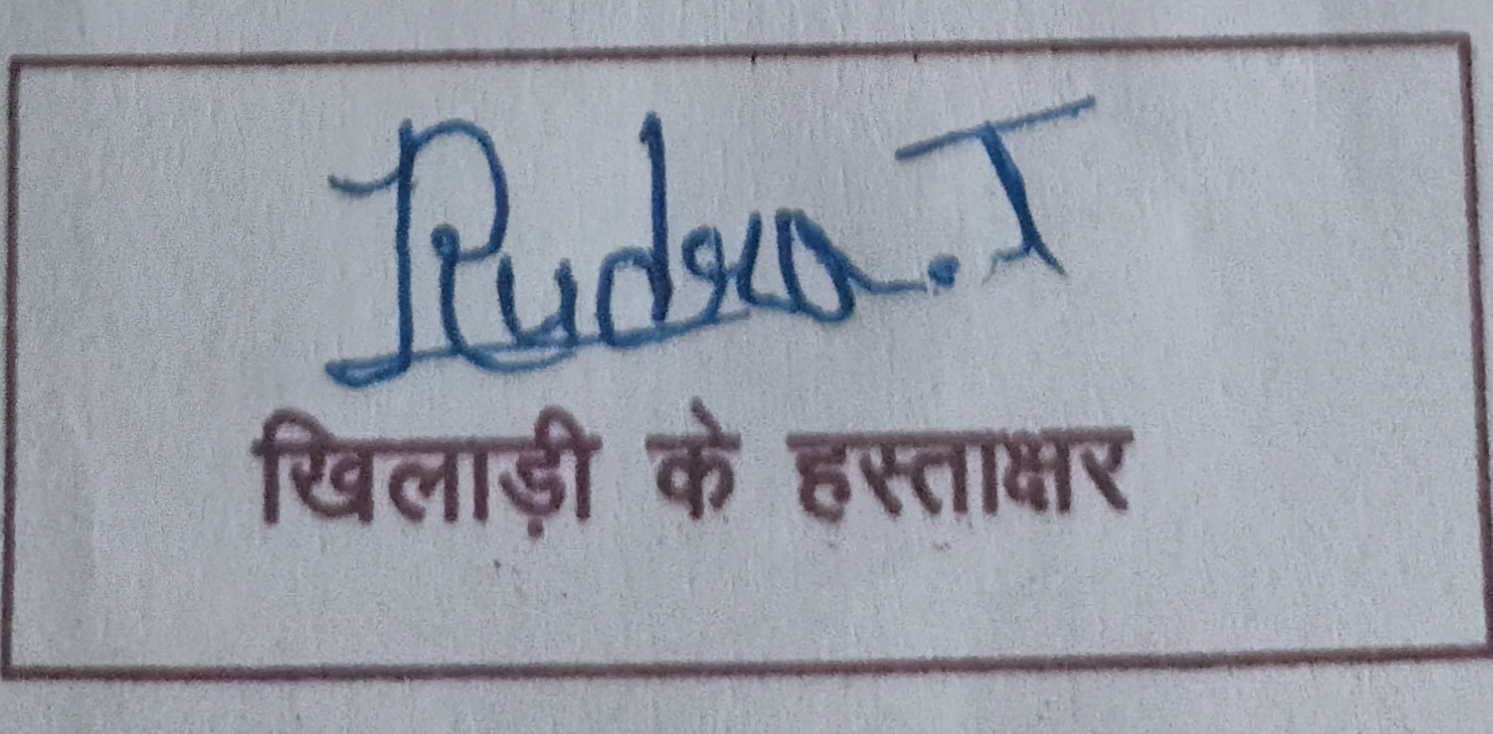 Rudra.T
खिलाड़ी के हस्ताक्षर